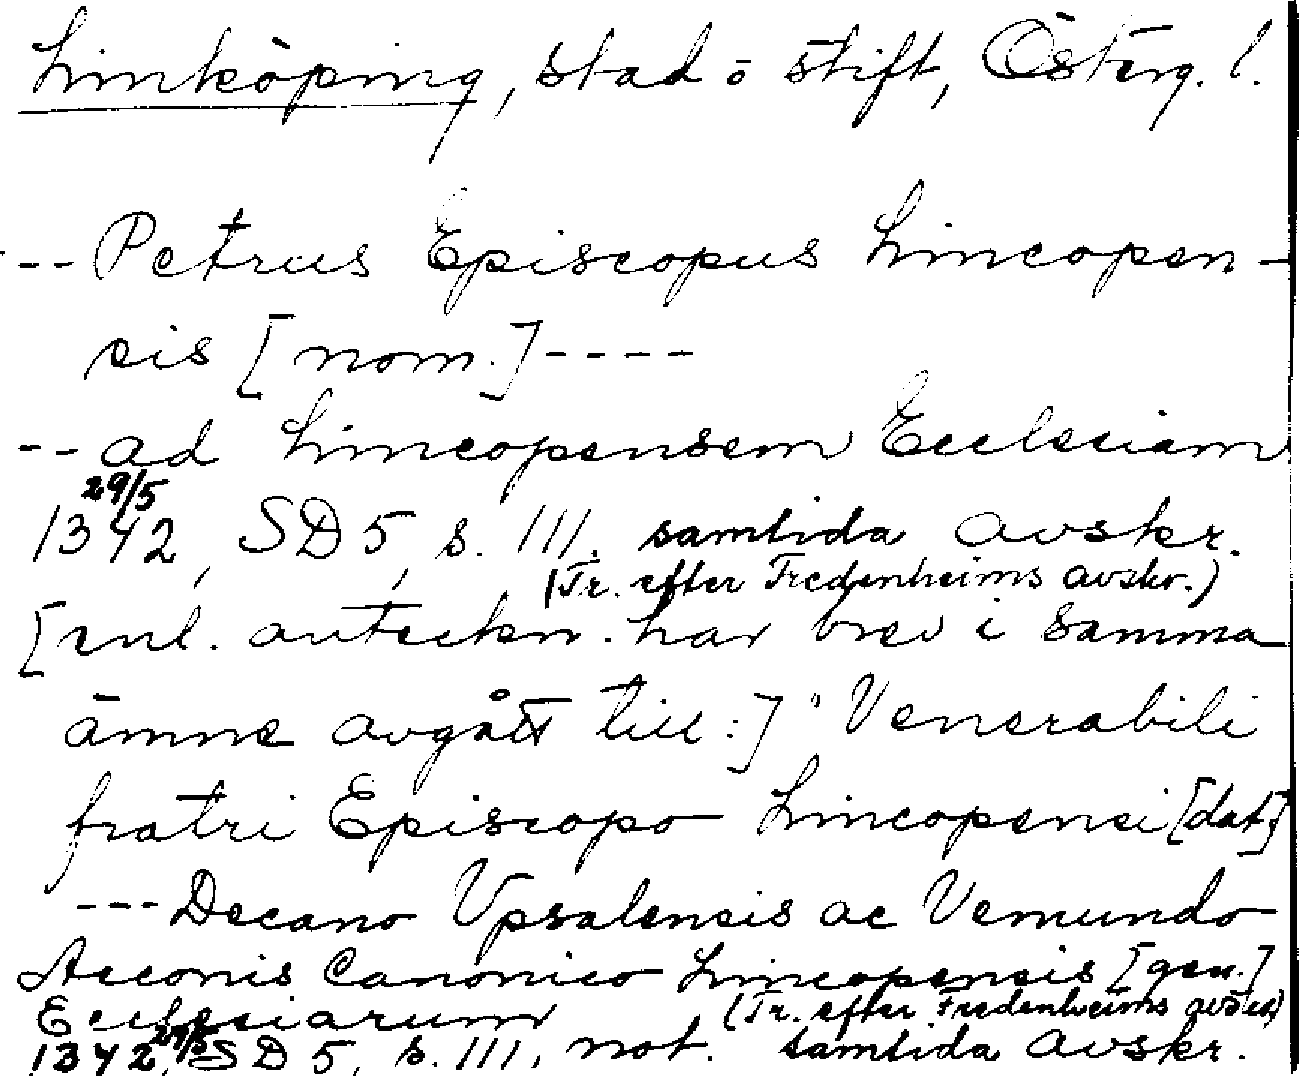 Linköping, stad o stift, Österg. l.
--- Petrus Episcopus Lincopen-
sis [nom.] ----
-- ad Lincopensem Ecclesiam
29/5
1342, SD 5, s. 111. samtida avskr.
(Tr. efter Fredenheims avskr.)
[enl. anteckn. har brev i samma
ämne avgått till:] "Venerabili
fratri Episcopo Lincopensi [dat.]
--- Decano Upsalensis ac Vemundo
Acconis Canonico Lincopensis [gen.]
Ecclesiarum (Tr. efter Fredenheims
1342 29/5, SD 5, s. 111, not. samtida avskr.